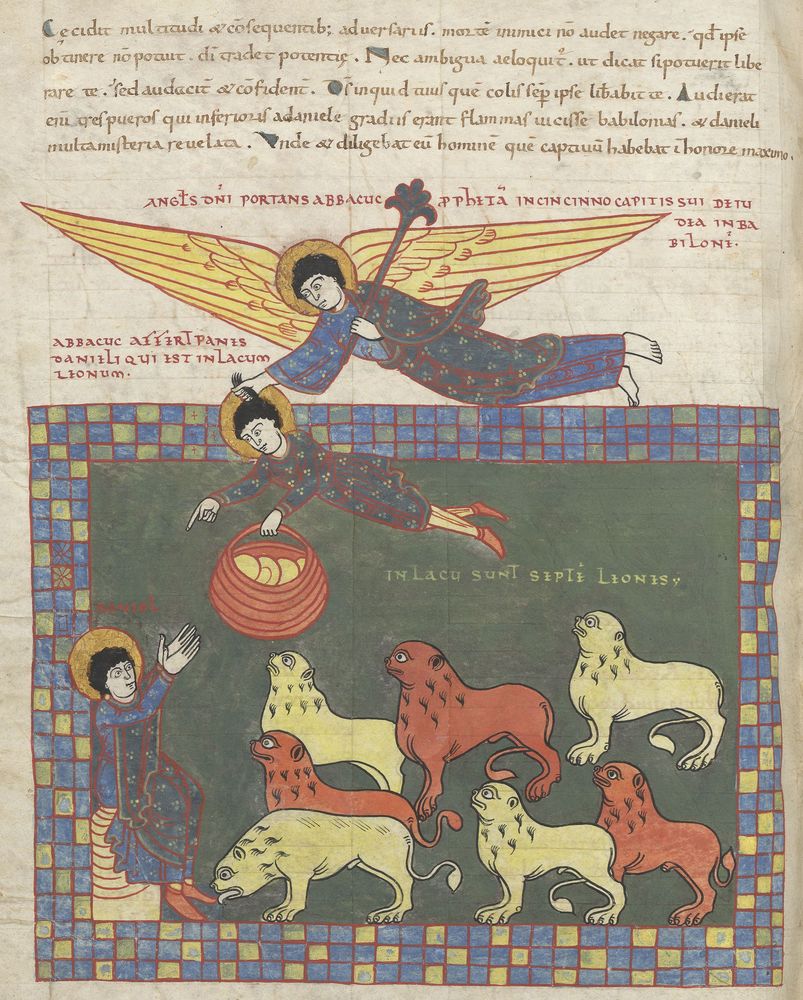 Cecidit multitudi & consequentib; adversarius. mortē inimici nō audet negare. qđ ipse
obtinere nō potuit. dī tradet potentię. Nec ambigua aeloquit̄. ut dicat si potuerit libe
rare te. sed audacit̄ & confident̄. Dς̄ inquid tuus quē colis sēp ipse liberabit te. Audierat
enī tres pueros qui inferioris a daniele gradus erant flammas vicisse babilonias. & danieli
multa misteria revelata. Unde & diligebat eū hominē quē captivū habebat ī honore maximo.
ANGLS DNI PORTANS ABBACUC PPHETA IN CINCINNO CAPITIS SUI DE IU
DEA IN BA
BILONE.
ABBACUC AFFERT PANES
DANIELI QUI EST IN LACUM
LEONUM.
IN LACU SUNT SEPTE LEONES
DANIEL